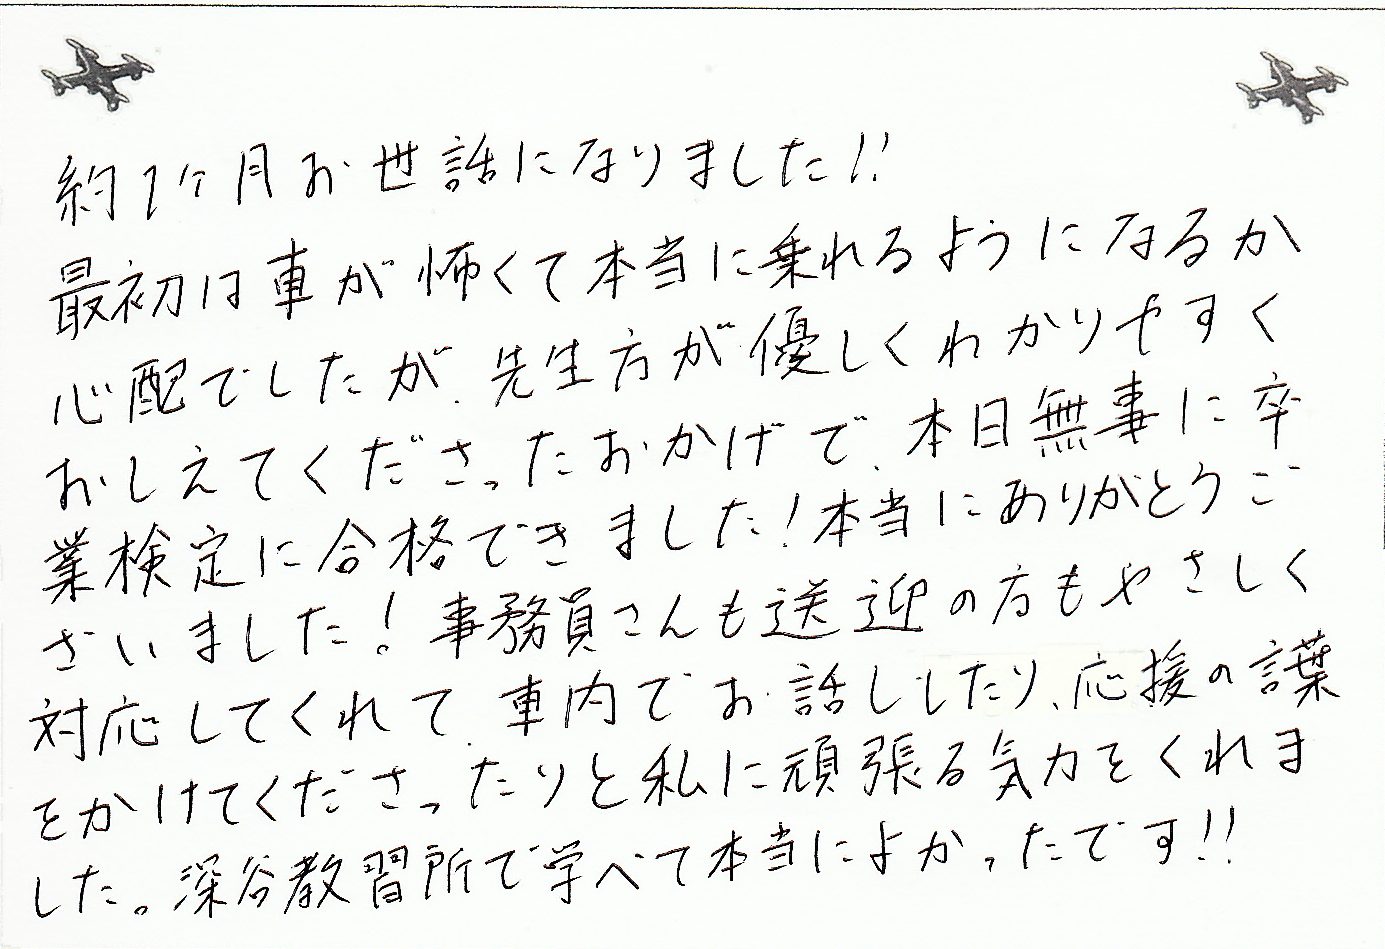 約1ケ月お世話になりました!!
最初は車が怖くて本当に乗れるようになるか
心配でしたが、先生方が優しくわかりやすく
おしえてくださったおかげで、本日無事に卒
業検定に合格できました!本当にありがとうご
ざいました!事務員さんも送迎の方もやさしく
対応してくれて、車内でお話ししたり、応援の言葉
をかけてくださったりと私に頑張る気力をくれま
した。深谷教習所で学べて本当によかったです!!